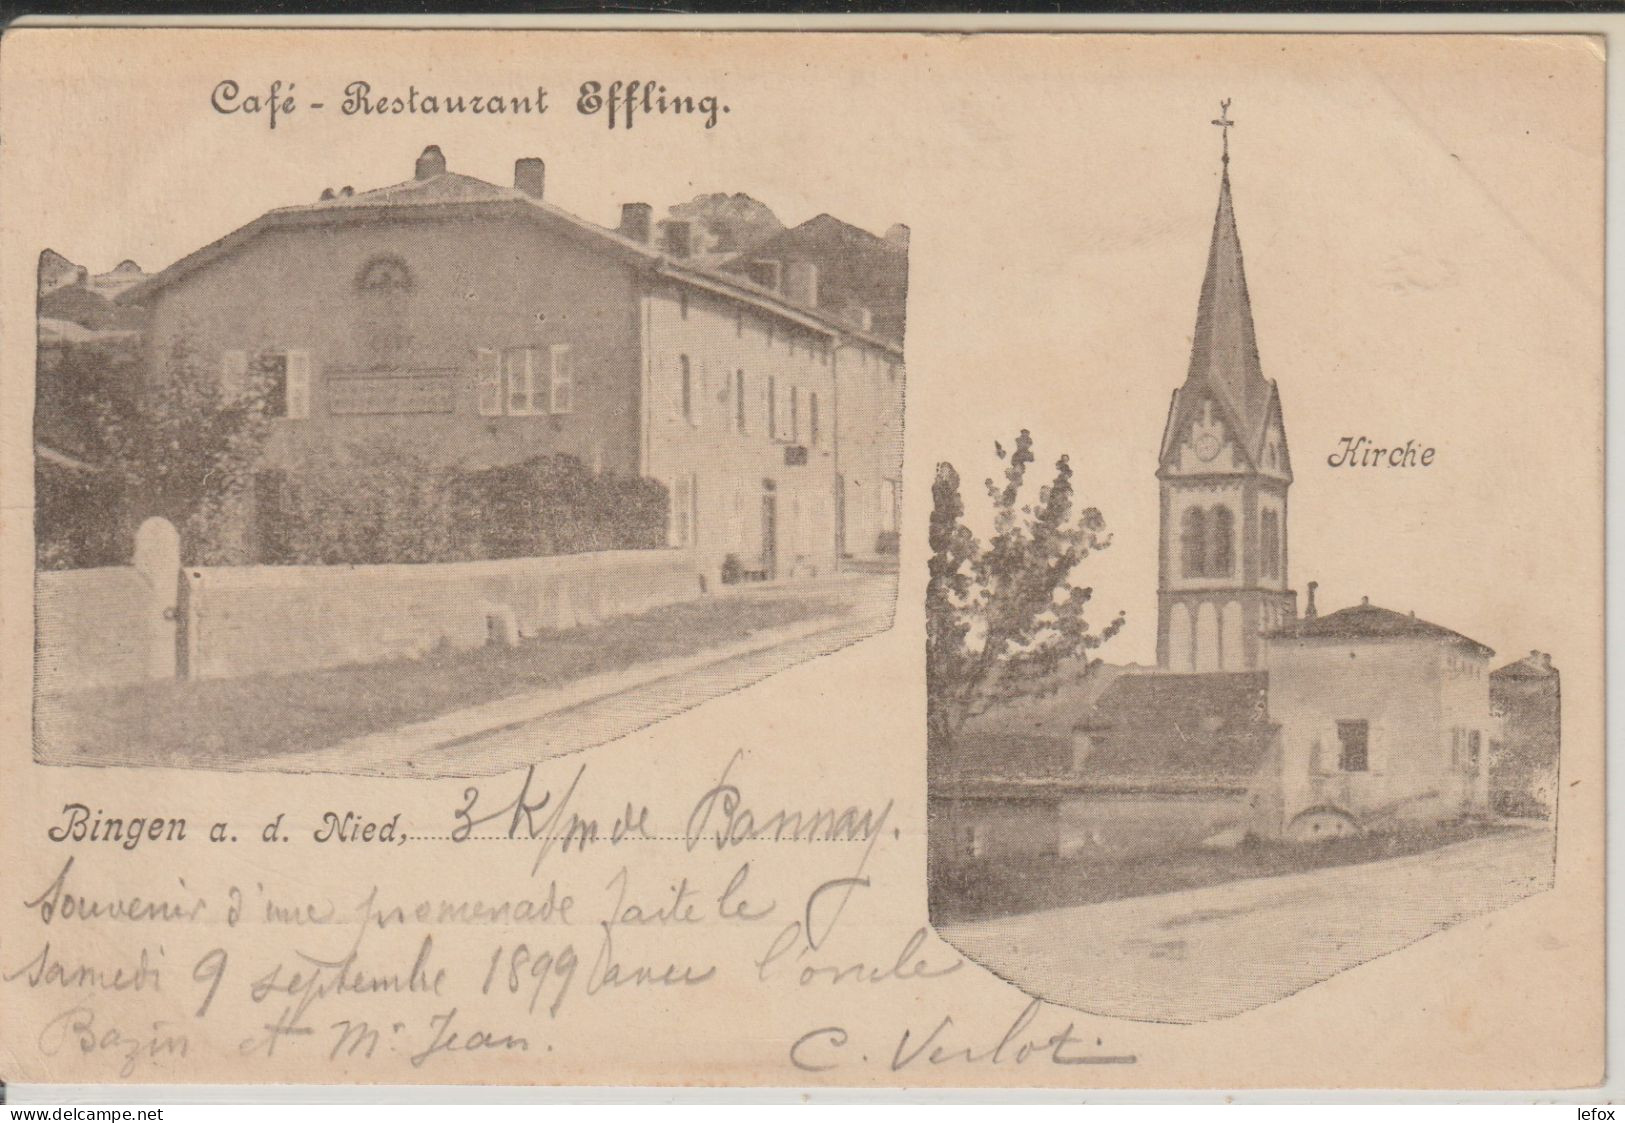 Café - Restaurant Effling.
Kirche
Bingen a. d. Nied, 3 K/m de Bannay.
Souvenir d'une promenade faite le
samedi 9 septembre 1899 avec l'oncle
Bazin et Mr Jean. C. Verlot.
www.delcampe.net
lefox